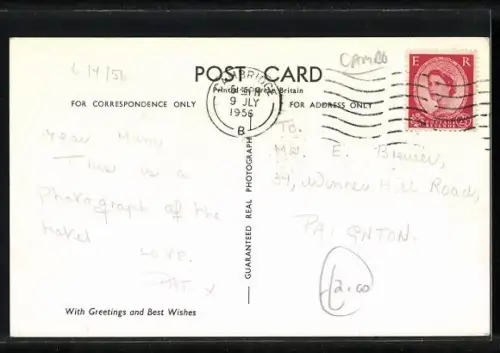 6/4/56
CAMBS
POST CARD
Printed in Great Britain
CAMBRIDGE
9 JLY
1956
B
E R
FOR CORRESPONDENCE ONLY
FOR ADDRESS ONLY
GUARANTEED REAL PHOTOGRAPH
Dear Mum
This is a
Photograph of the
hotel
LOVE.
PAT X
To.
Mrs. E.
34, Winner Hill Road,
PAIGNTON.
£2.00
With Greetings and Best Wishes